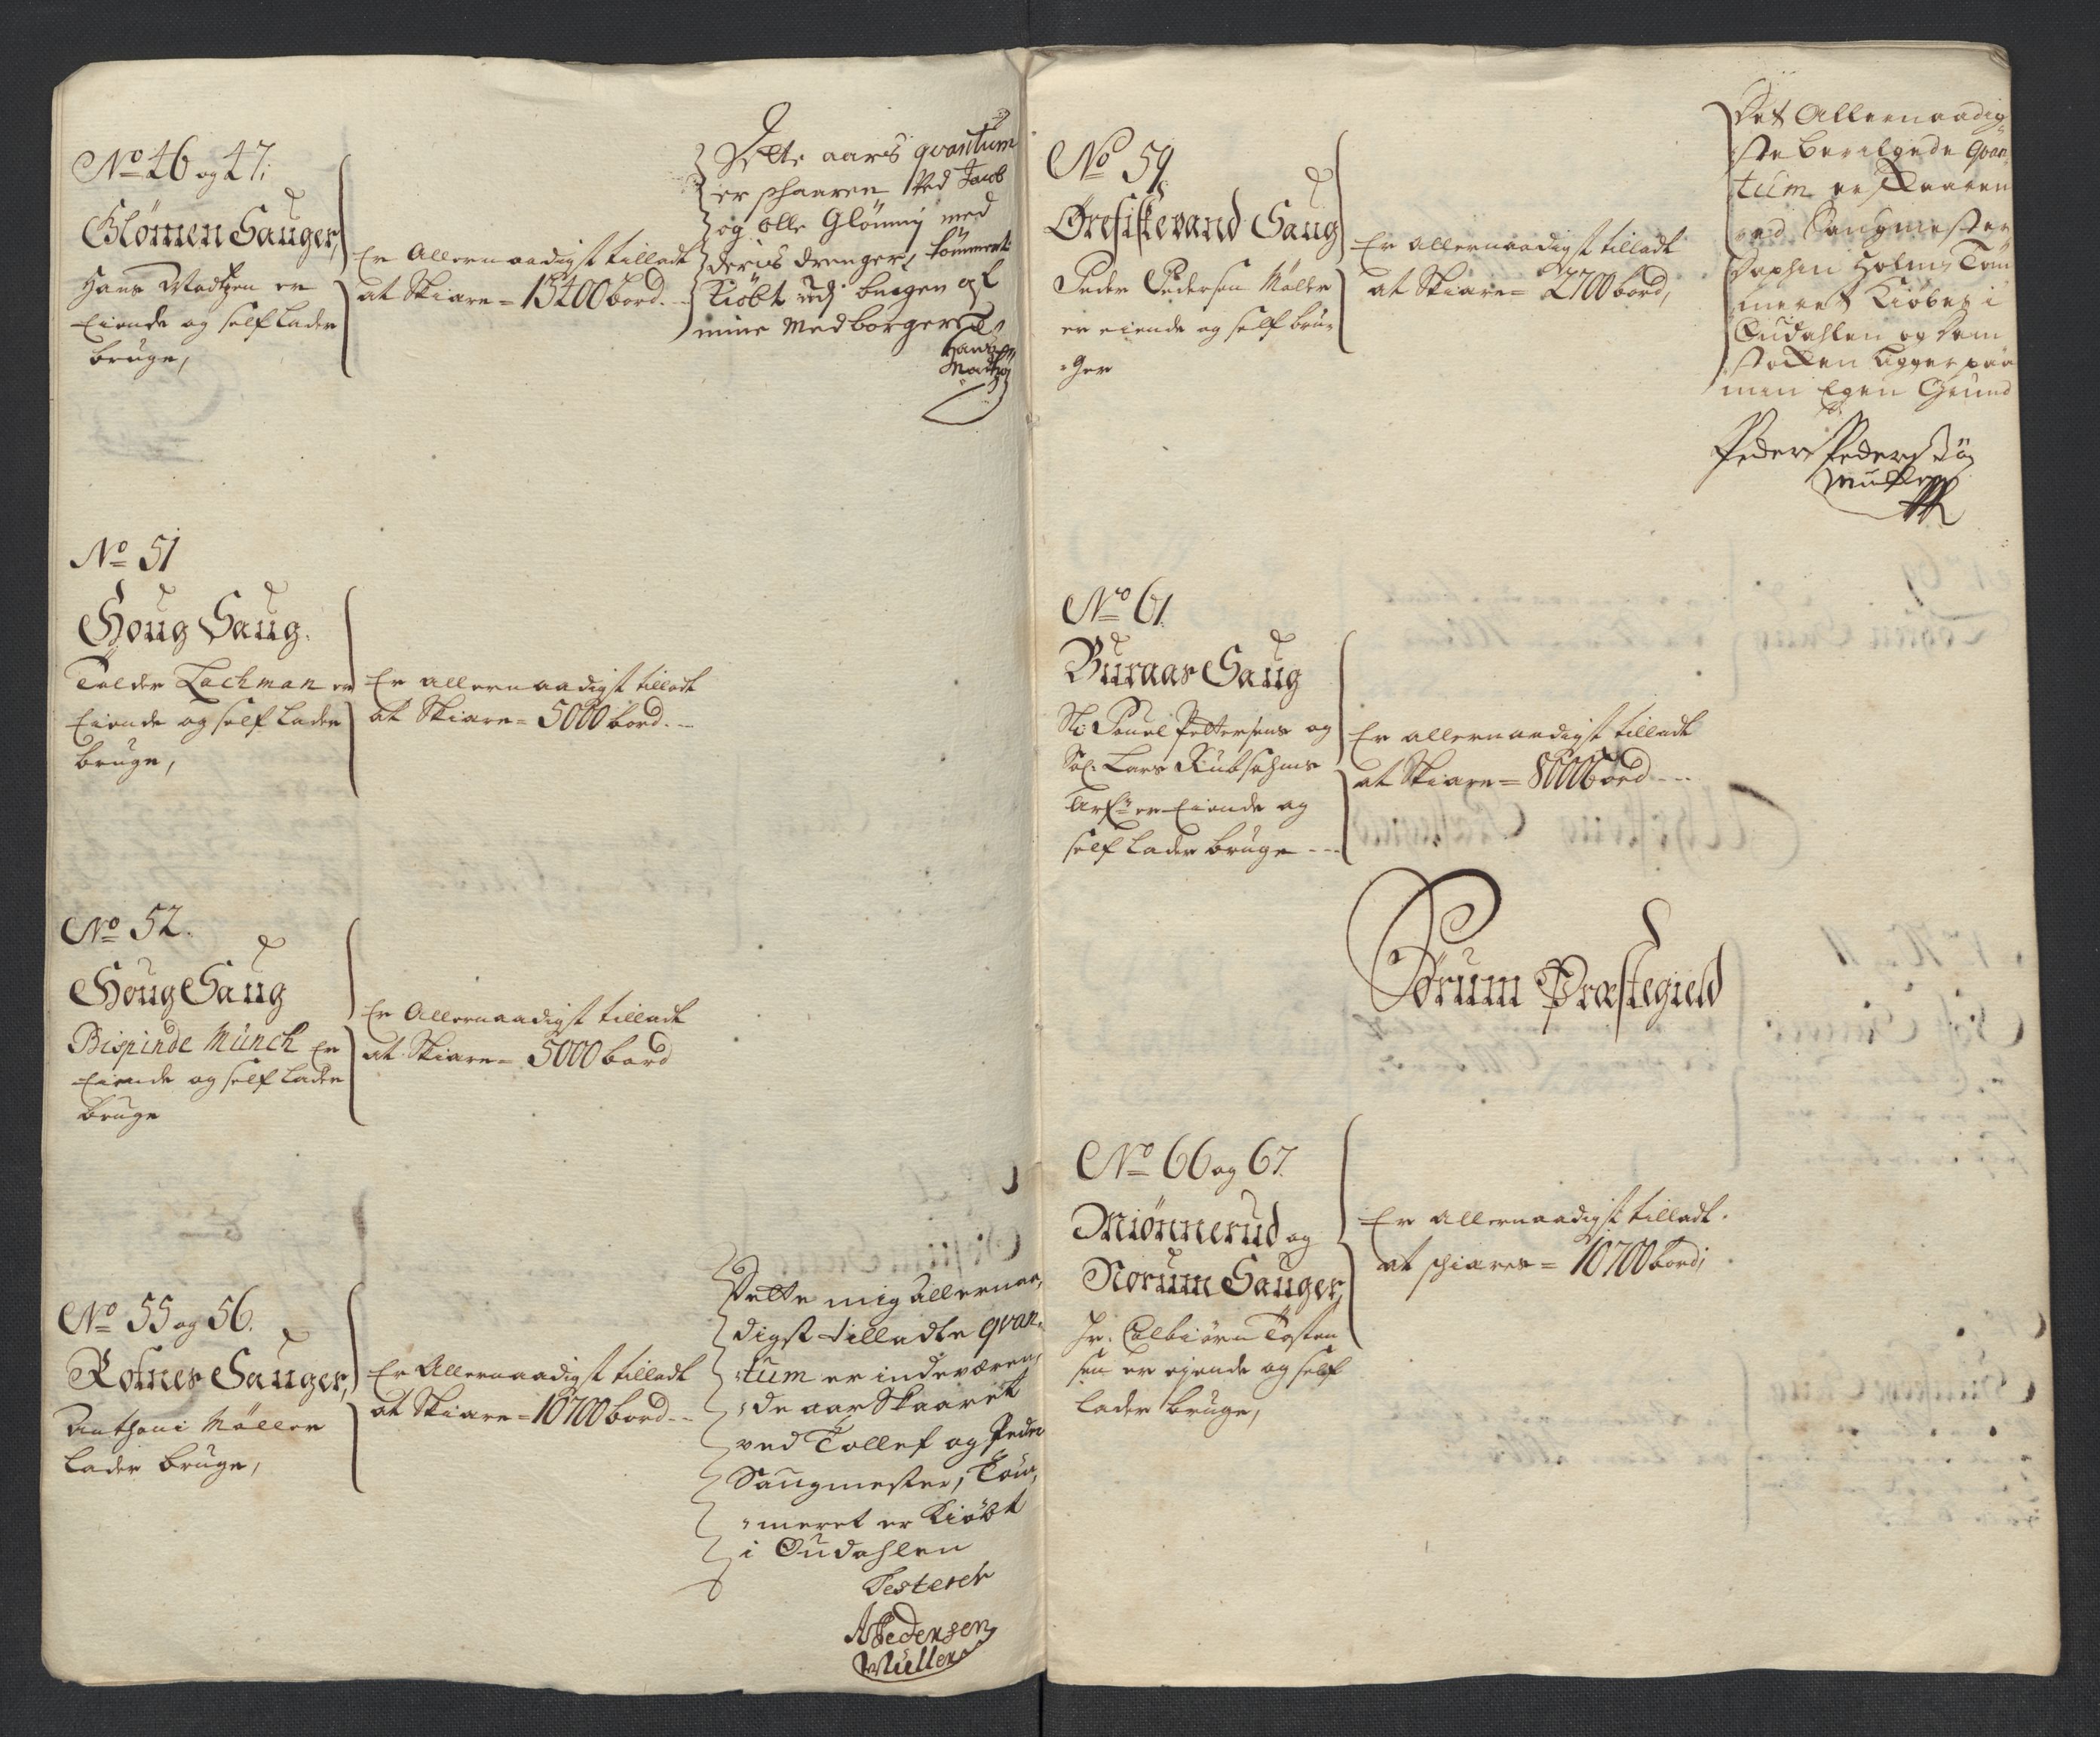 No 46 og 47:
Glömen Sauger,
Hans Madtzen er
Eiende og self lader
bruge,
Er Allernaadigst tilladt
at Skiære = 15400 bord. –
Dette aars qvantum
er schaaren Ved Jacob
og olle Glömmj med
deris drenger, tömmert
Kiöbt udj buigen af
mine Medborgere
Hans
Madtzen
No 51
Houg Saug.
Tolder Lachman er
Eiende og self lader
bruge,
Er allernaadigst tilladt
at Skiære = 5000 bord. –
No 52.
Houg Saug
Bispinde Münch er
Eiende og self lader
bruge
Er Allernaadigst tilladt
at Skiære = 5000 bord
No 55 og 56.
Rotnes Sauger,
Anthoni Möller
lader bruge,
Er Allernaadigst tilladt
at Skiære = 10700 bord –
Dette mig allernaa,
digst tilladte qvan,
,tum er indeværen,
,de aar Skaaret
ved Tollef og Peder
Saugmester, Töm,
,meret er Kiöbt
i Oudahlen
Testerer
APedersen
Müller
No 59
Örefiskevand Saug
Peder Pedersen Möller
er eiende og self bru,
,ger
Er allernaadigst tilladt
at Skiære = 2700 bord,
Det Allernaadig,
ste bevilgede Qvan,
tum er skaaren
ved Saugmester
Holm, Töm
meret Kiöbes i
Oudahlen og Dem
stocken ligger paa
min Egen Grund
Peder Pedersön
Müller
No 61.
Buraas Saug
Sl: Pouel Pettersens og
Sal. Lars Rubsahms
Arf: er Eiende og
self lader bruge –
Er allernaadigst tilladt
at Skiære = 8000 bord –
Sörum Præstegield
No 66 og 67.
Miönnerud og
Norum Sauger,
Hr. Colbiörn Tosten
sen er eiende og self
lader bruge,
Er allernaadigst tilladt.
at schiæres = 10700 bord,